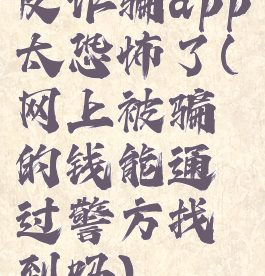 反诈骗app
太恐怖了(
网上被骗
的钱能通
过警方找
到吗)